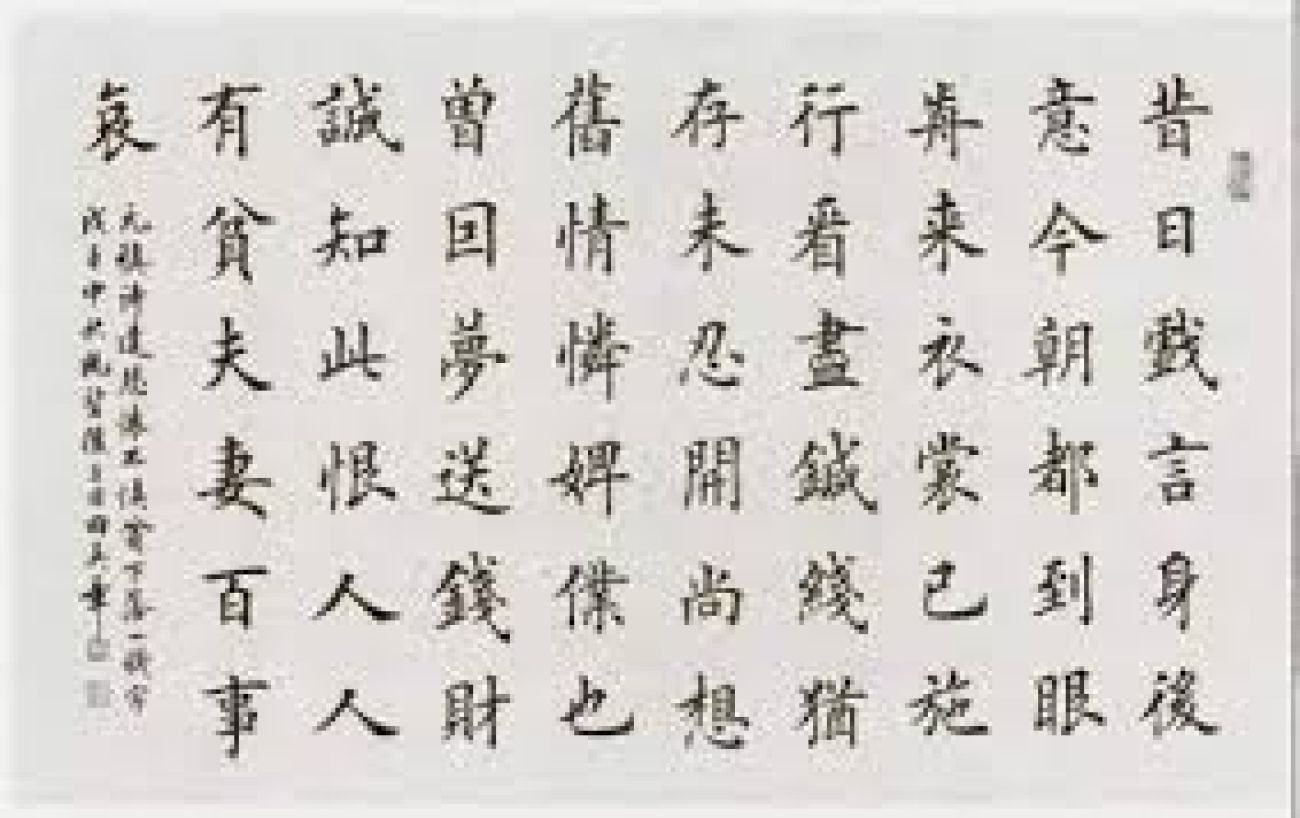 昔日戲言身後
意今朝都到眼
歬来衣裳已施
行看盡鍼綫猶
存未忍開尚想
舊情憐婢僕也
曾囙夢送錢財
誠知此恨人人
有貧夫妻百事
哀
元稹詩遣悲懷 貧下落一賤字
戊子中秋